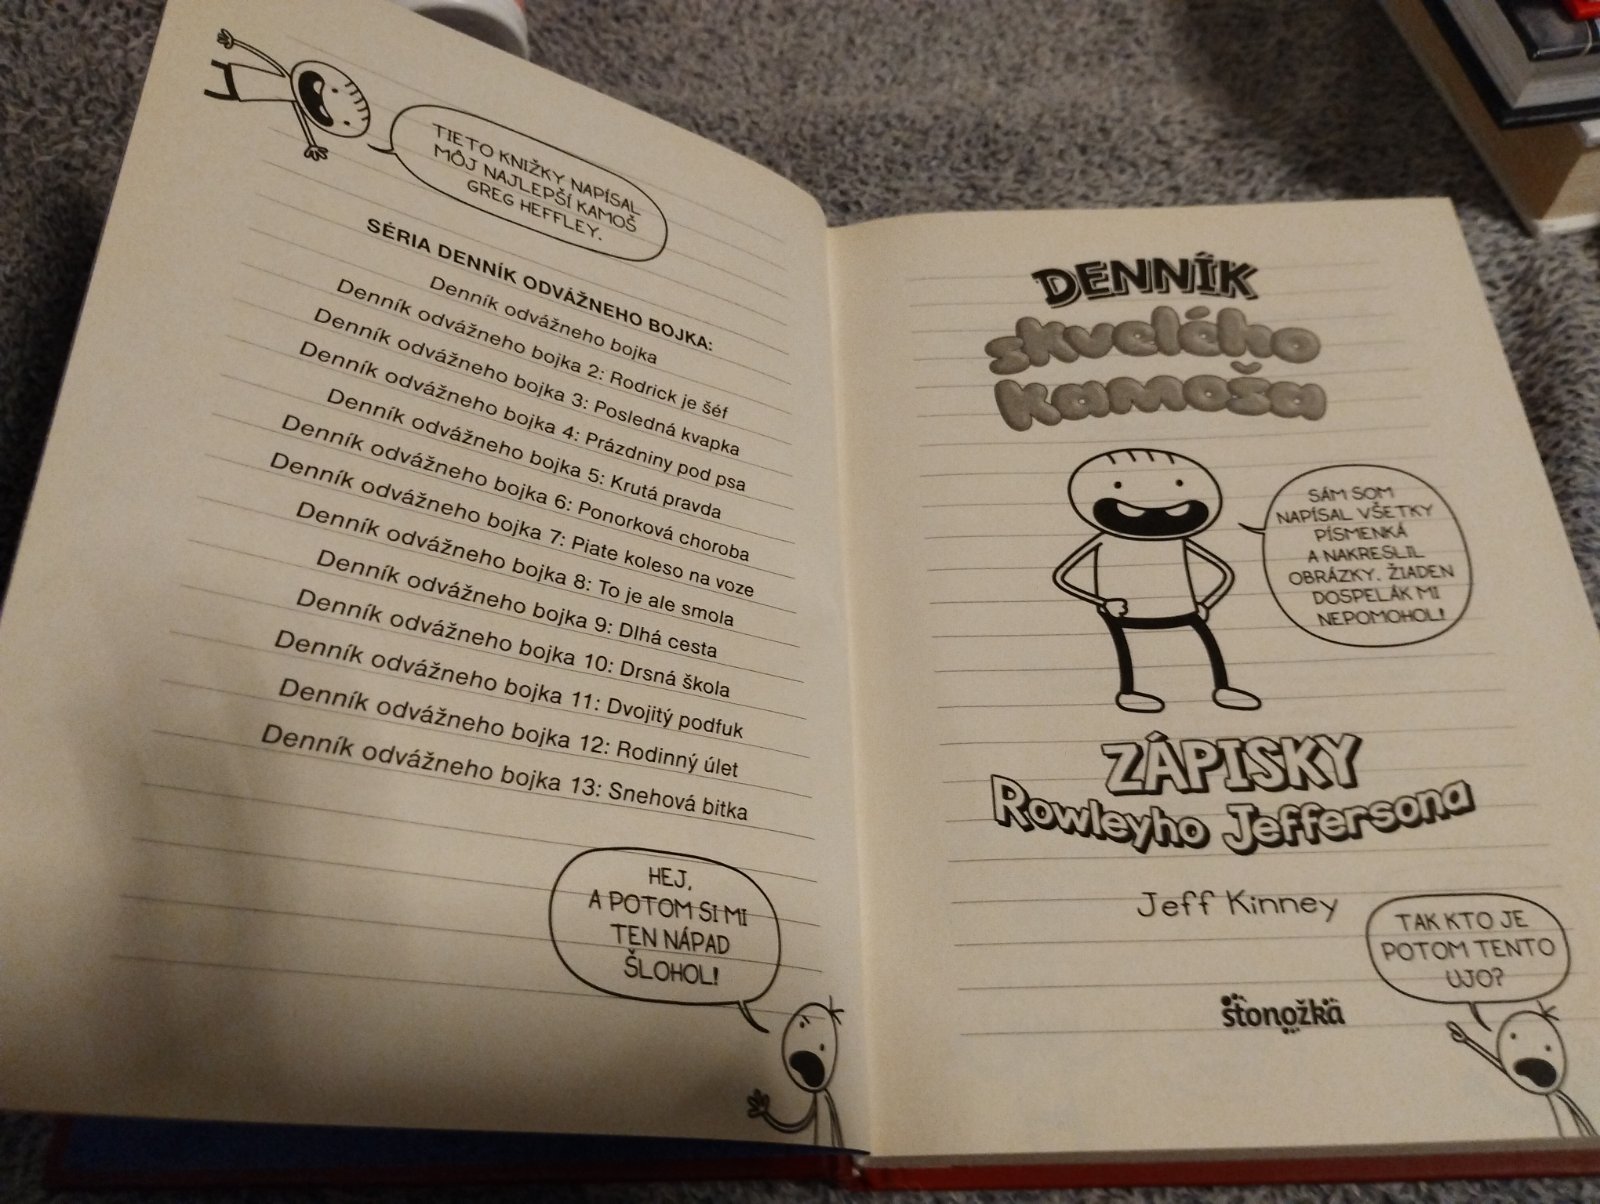 TIETO KNIŽKY NAPÍSAL
MÔJ NAJLEPŠÍ KAMOŠ
GREG HEFFLEY.
SÉRIA DENNÍK ODVÁŽNEHO BOJKA:
Denník odvážneho bojka
Denník odvážneho bojka 2: Rodrick je šéf
Denník odvážneho bojka 3: Posledná kvapka
Denník odvážneho bojka 4: Prázdniny pod psa
Denník odvážneho bojka 5: Krutá pravda
Denník odvážneho bojka 6: Ponorková choroba
Denník odvážneho bojka 7: Piate koleso na voze
Denník odvážneho bojka 8: To je ale smola
Denník odvážneho bojka 9: Dlhá cesta
Denník odvážneho bojka 10: Drsná škola
Denník odvážneho bojka 11: Dvojitý podfuk
Denník odvážneho bojka 12: Rodinný úlet
Denník odvážneho bojka 13: Snehová bitka
HEJ,
A POTOM SI MI
TEN NÁPAD
ŠLOHOL!
DENNÍK
skvelého
kamoša
SÁM SOM
NAPÍSAL VŠETKY
PÍSMENKÁ
A NAKRESLIL
OBRÁZKY. ŽIADEN
DOSPELÁK MI
NEPOMOHOL!
ZÁPISKY
Rowleyho Jeffersona
Jeff Kinney
TAK KTO JE
POTOM TENTO
UJO?
stonožka